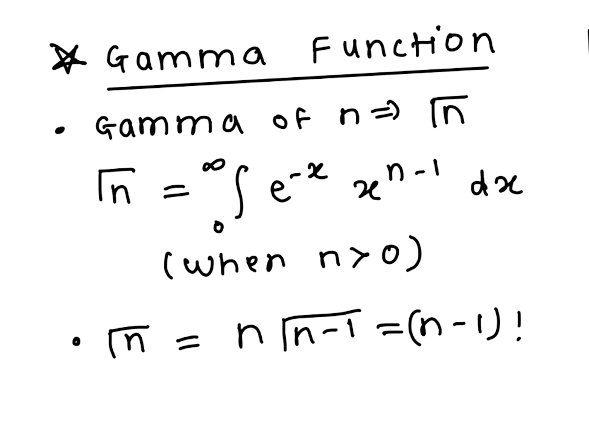 ☆ Gamma Function
• Gamma of n ⇒ Γn
Γn = ₀∫^∞ e^-x x^n-1 dx
(when n > 0)
• Γn = n Γn-1 = (n-1)!